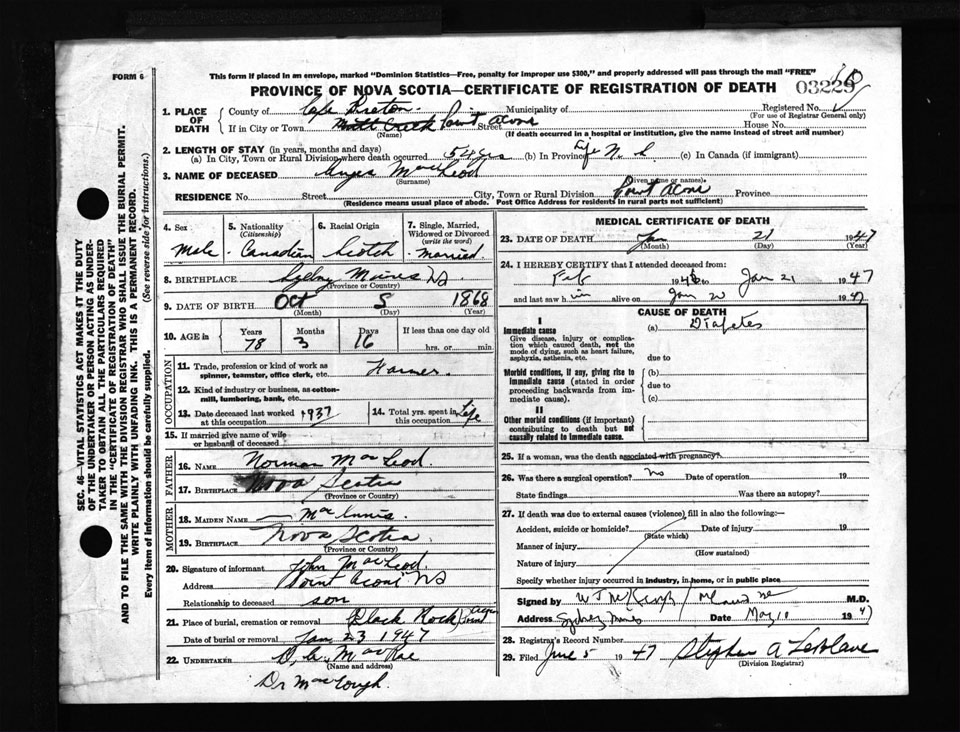 FORM 6
This form if placed in an envelope, marked "Dominion Statistics—Free, penalty for improper use $300," and properly addressed will pass through the mail "FREE"
PROVINCE OF NOVA SCOTIA—CERTIFICATE OF REGISTRATION OF DEATH 03229
1. PLACE OF DEATH
County of Cape Breton Municipality of Registered No.
(For use of Registrar General only)
If in City or Town Point Acone Street House No.
(Name) (If death occurred in a hospital or institution, give the name instead of street and number)
2. LENGTH OF STAY (in years, months and days)
(a) In City, Town or Rural Division where death occurred 54 yrs (b) In Province Life N. S. (c) In Canada (if immigrant)
3. NAME OF DECEASED Angus MacLeod
(Surname) (Given name or names)
RESIDENCE No. Street City, Town or Rural Division Point Acone Province
(Residence means usual place of abode. Post Office Address for residents in rural parts not sufficient)
4. Sex 5. Nationality (Citizenship) 6. Racial Origin 7. Single, Married, Widowed or Divorced (write the word)
Male Canadian Scotch Married
8. BIRTHPLACE Sydney Mines NS
(Province or Country)
9. DATE OF BIRTH Oct 5 1868
(Month) (Day) (Year)
10. AGE in Years Months Days If less than one day old
78 3 16 hrs. or min.
OCCUPATION
11. Trade, profession or kind of work as spinner, teamster, office clerk, etc. Farmer
12. Kind of industry or business, as cotton-mill, lumbering, bank, etc.
13. Date deceased last worked at this occupation 1937 14. Total yrs. spent in this occupation Life
15. If married give name of wife or husband of deceased
FATHER
16. NAME Norman MacLeod
17. BIRTHPLACE Nova Scotia
(Province or Country)
MOTHER
18. MAIDEN NAME — MacInnis
19. BIRTHPLACE Nova Scotia
(Province or Country)
20. Signature of informant John MacLeod
Address Point Aconi NS
Relationship to deceased son
21. Place of burial, cremation or removal Black Rock, Point
Date of burial or removal Jan 23 1947
22. UNDERTAKER MacRae
(Name and address)
Dr MacGough
MEDICAL CERTIFICATE OF DEATH
23. DATE OF DEATH Jan 21 1947
(Month) (Day) (Year)
24. I HEREBY CERTIFY that I attended deceased from:
Feb 1946 to Jan 21 1947
and last saw him alive on Jan 20 1947
CAUSE OF DEATH
I
Immediate cause
Give disease, injury or complication which caused death, not the mode of dying, such as heart failure, asphyxia, asthenia, etc.
(a) Diabetes
due to
Morbid conditions, if any, giving rise to immediate cause (stated in order proceeding backwards from immediate cause).
(b)
due to
(c)
II
Other morbid conditions (if important) contributing to death but not causally related to immediate cause.
25. If a woman, was the death associated with pregnancy?
26. Was there a surgical operation? No Date of operation 19
State findings Was there an autopsy?
27. If death was due to external causes (violence) fill in also the following:—
Accident, suicide or homicide? Date of injury 19
(State which)
Manner of injury
(How sustained)
Nature of injury
Specify whether injury occurred in industry, in home, or in public place
Signed by M.D.
Address Sydney Mines Date May 10 1947
28. Registrar's Record Number
29. Filed June 5 1947 Stephen A LeBlanc
(Division Registrar)
SEC. 46—VITAL STATISTICS ACT MAKES IT THE DUTY
OF THE UNDERTAKER OR PERSON ACTING AS UNDER-
TAKER TO OBTAIN ALL THE PARTICULARS REQUIRED
IN THE "CERTIFICATE OF REGISTRATION OF DEATH"
AND TO FILE THE SAME WITH THE DIVISION REGISTRAR WHO SHALL ISSUE THE BURIAL PERMIT.
WRITE PLAINLY WITH UNFADING INK. THIS IS A PERMANENT RECORD.
Every item of information should be carefully supplied. (See reverse side for instructions.)